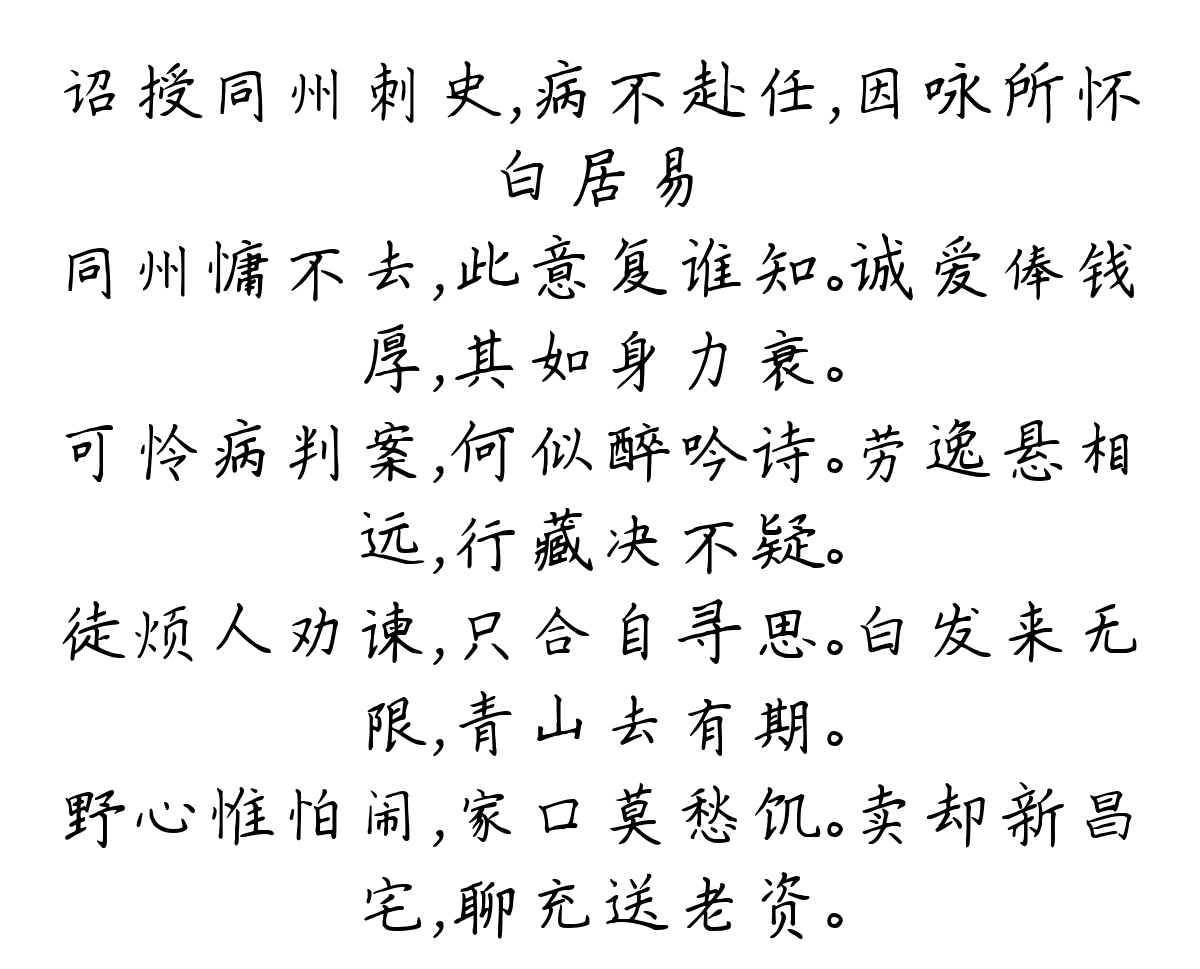 诏授同州刺史,病不赴任,因咏所怀
白居易
同州慵不去,此意复谁知。诚爱俸钱
厚,其如身力衰。
可怜病判案,何似醉吟诗。劳逸悬相
远,行藏决不疑。
徒烦人劝谏,只合自寻思。白发来无
限,青山去有期。
野心惟怕闹,家口莫愁饥。卖却新昌
宅,聊充送老资。